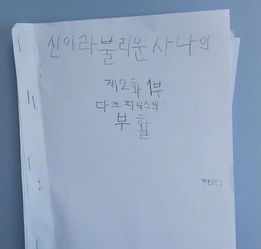 신이라불리운 사나의
제2화 1부
다크피닉스의
부활